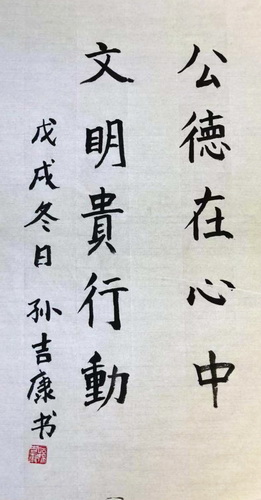 公德在心中
文明貴行動
戊戌冬日 孙吉康书